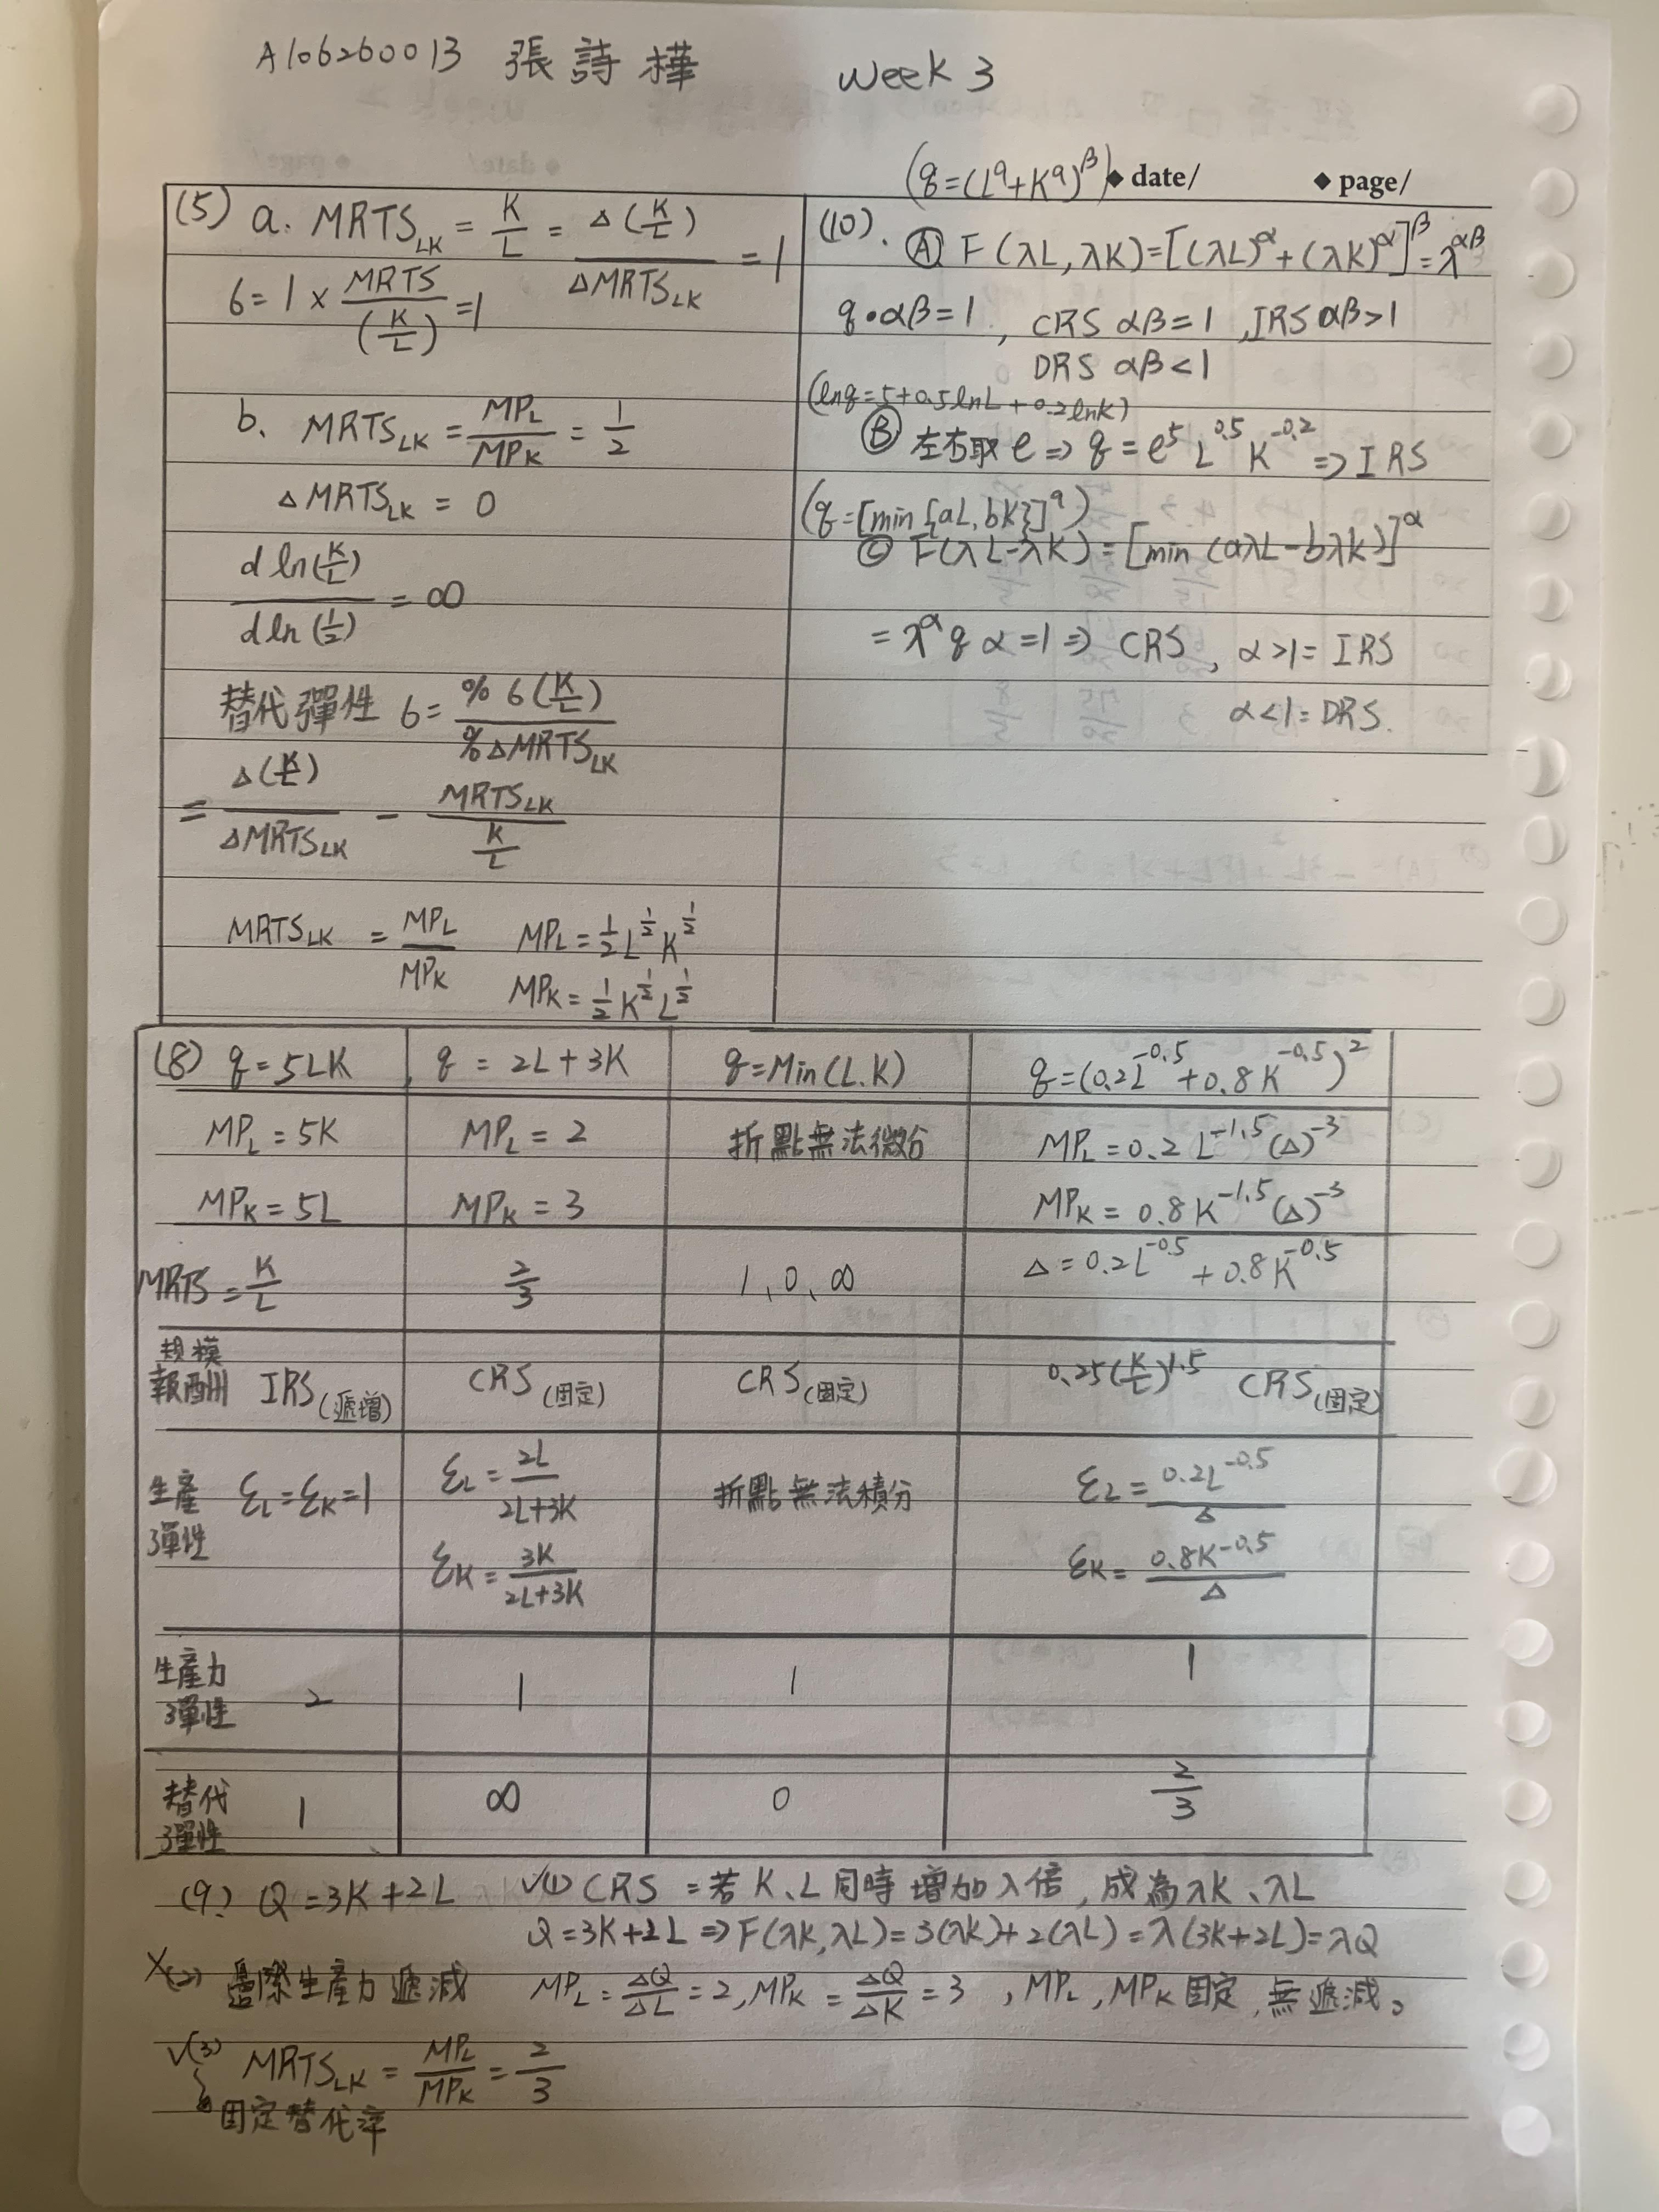 A106260013 張詩樺 Week 3
◆ date/ ◆ page/
(5) a. MRTS_LK = K/L = Δ(K/L)/ΔMRTS_LK = 1
6 = 1 × MRTS/(K/L) = 1
b. MRTS_LK = MP_L/MP_K = 1/2
ΔMRTS_LK = 0
d ln(K/L)/d ln(1/2) = ∞
替代彈性 6 = % 6(K/L)/%ΔMRTS_LK
= Δ(K/L)/ΔMRTS_LK - MRTS_LK/(K/L)
MRTS_LK = MP_L/MP_K MP_L = 1/2 L^1/2 K^1/2
MP_K = 1/2 K^1/2 L^1/2
(q=(L^α+K^α)^β)
(10). Ⓐ F(λL,λK)=[(λL)^α+(λK)^α]^β=λ^αβ
q•αβ=1, CRS αβ=1, IRS αβ>1
DRS αβ<1
(lnq=5+0.5lnL+0.2lnK)
Ⓑ 左右取 e ⇒ q = e^5 L^0.5 K^-0.2 ⇒ IRS
(q=[min{aL,bK}]^α)
Ⓒ F(λL-λK)=[min(aλL-bλK)]^α
= λ^α q α=1 ⇒ CRS, α>1=IRS
α<1=DRS.
(8) q=5LK q = 2L+3K q=Min(L.K) q=(0.2L^-0.5+0.8K^-0.5)^2
MP_L = 5K MP_L = 2 折點無法微分 MP_L=0.2 L^-1.5(Δ)^-3
MP_K = 5L MP_K = 3 MP_K = 0.8K^-1.5(Δ)^-3
MRTS = K/L 2/3 1,0,∞ Δ=0.2L^-0.5+0.8K^-0.5
規模
報酬 IRS(遞增) CRS(固定) CRS(固定) 0.25(K/L)^1.5 CRS(固定)
生產彈性 ε_L=ε_K=1 ε_L=2L/2L+3K 折點無法積分 ε_L=0.2L^-0.5/Δ
ε_K=3K/2L+3K ε_K=0.8K^-0.5/Δ
生產力彈性 2 1 1 1
替代彈性 1 ∞ 0 2/3
(9) Q=3K+2L ✓(1) CRS =若 K、L同時增加λ倍,成為λK、λL
Q=3K+2L ⇒ F(λK,λL)=3(λK)+2(λL)=λ(3K+2L)=λQ
X(2) 邊際生產力遞減 MP_L=ΔQ/ΔL=2, MP_K=ΔQ/ΔK=3 , MP_L, MP_K固定,無遞減。
✓(3) MRTS_LK = MP_L/MP_K = 2/3
固定替代率